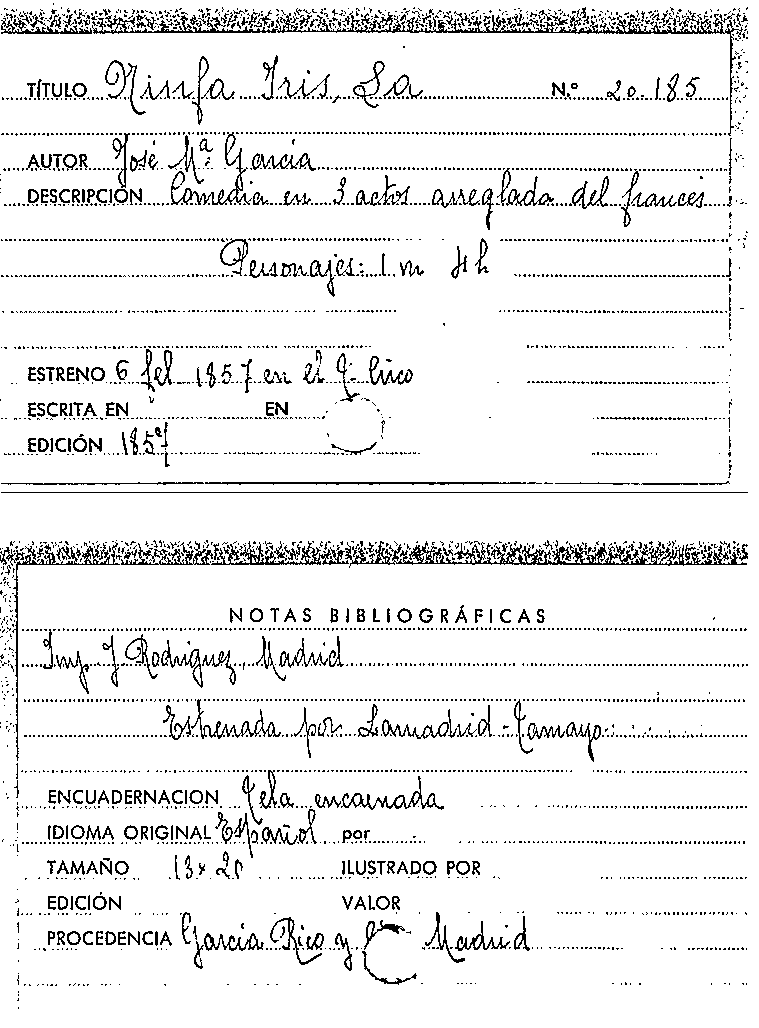 TÍTULO Ninfa Iris, La N.º 20.185
AUTOR José Mª García
DESCRIPCIÓN Comedia en 3 actos arreglada del francés
Personajes: 1 m 4 h
ESTRENO 6 feb 1857 en el T. Circo
ESCRITA EN EN
EDICIÓN 1857
NOTAS BIBLIOGRÁFICAS
Imp. J Rodriguez, Madrid
Estrenada por: Lamadrid - Tamayo
ENCUADERNACION Tela encarnada
IDIOMA ORIGINAL Español por
TAMAÑO 13 x 20 ILUSTRADO POR
EDICIÓN VALOR
PROCEDENCIA García Rico y Cª Madrid